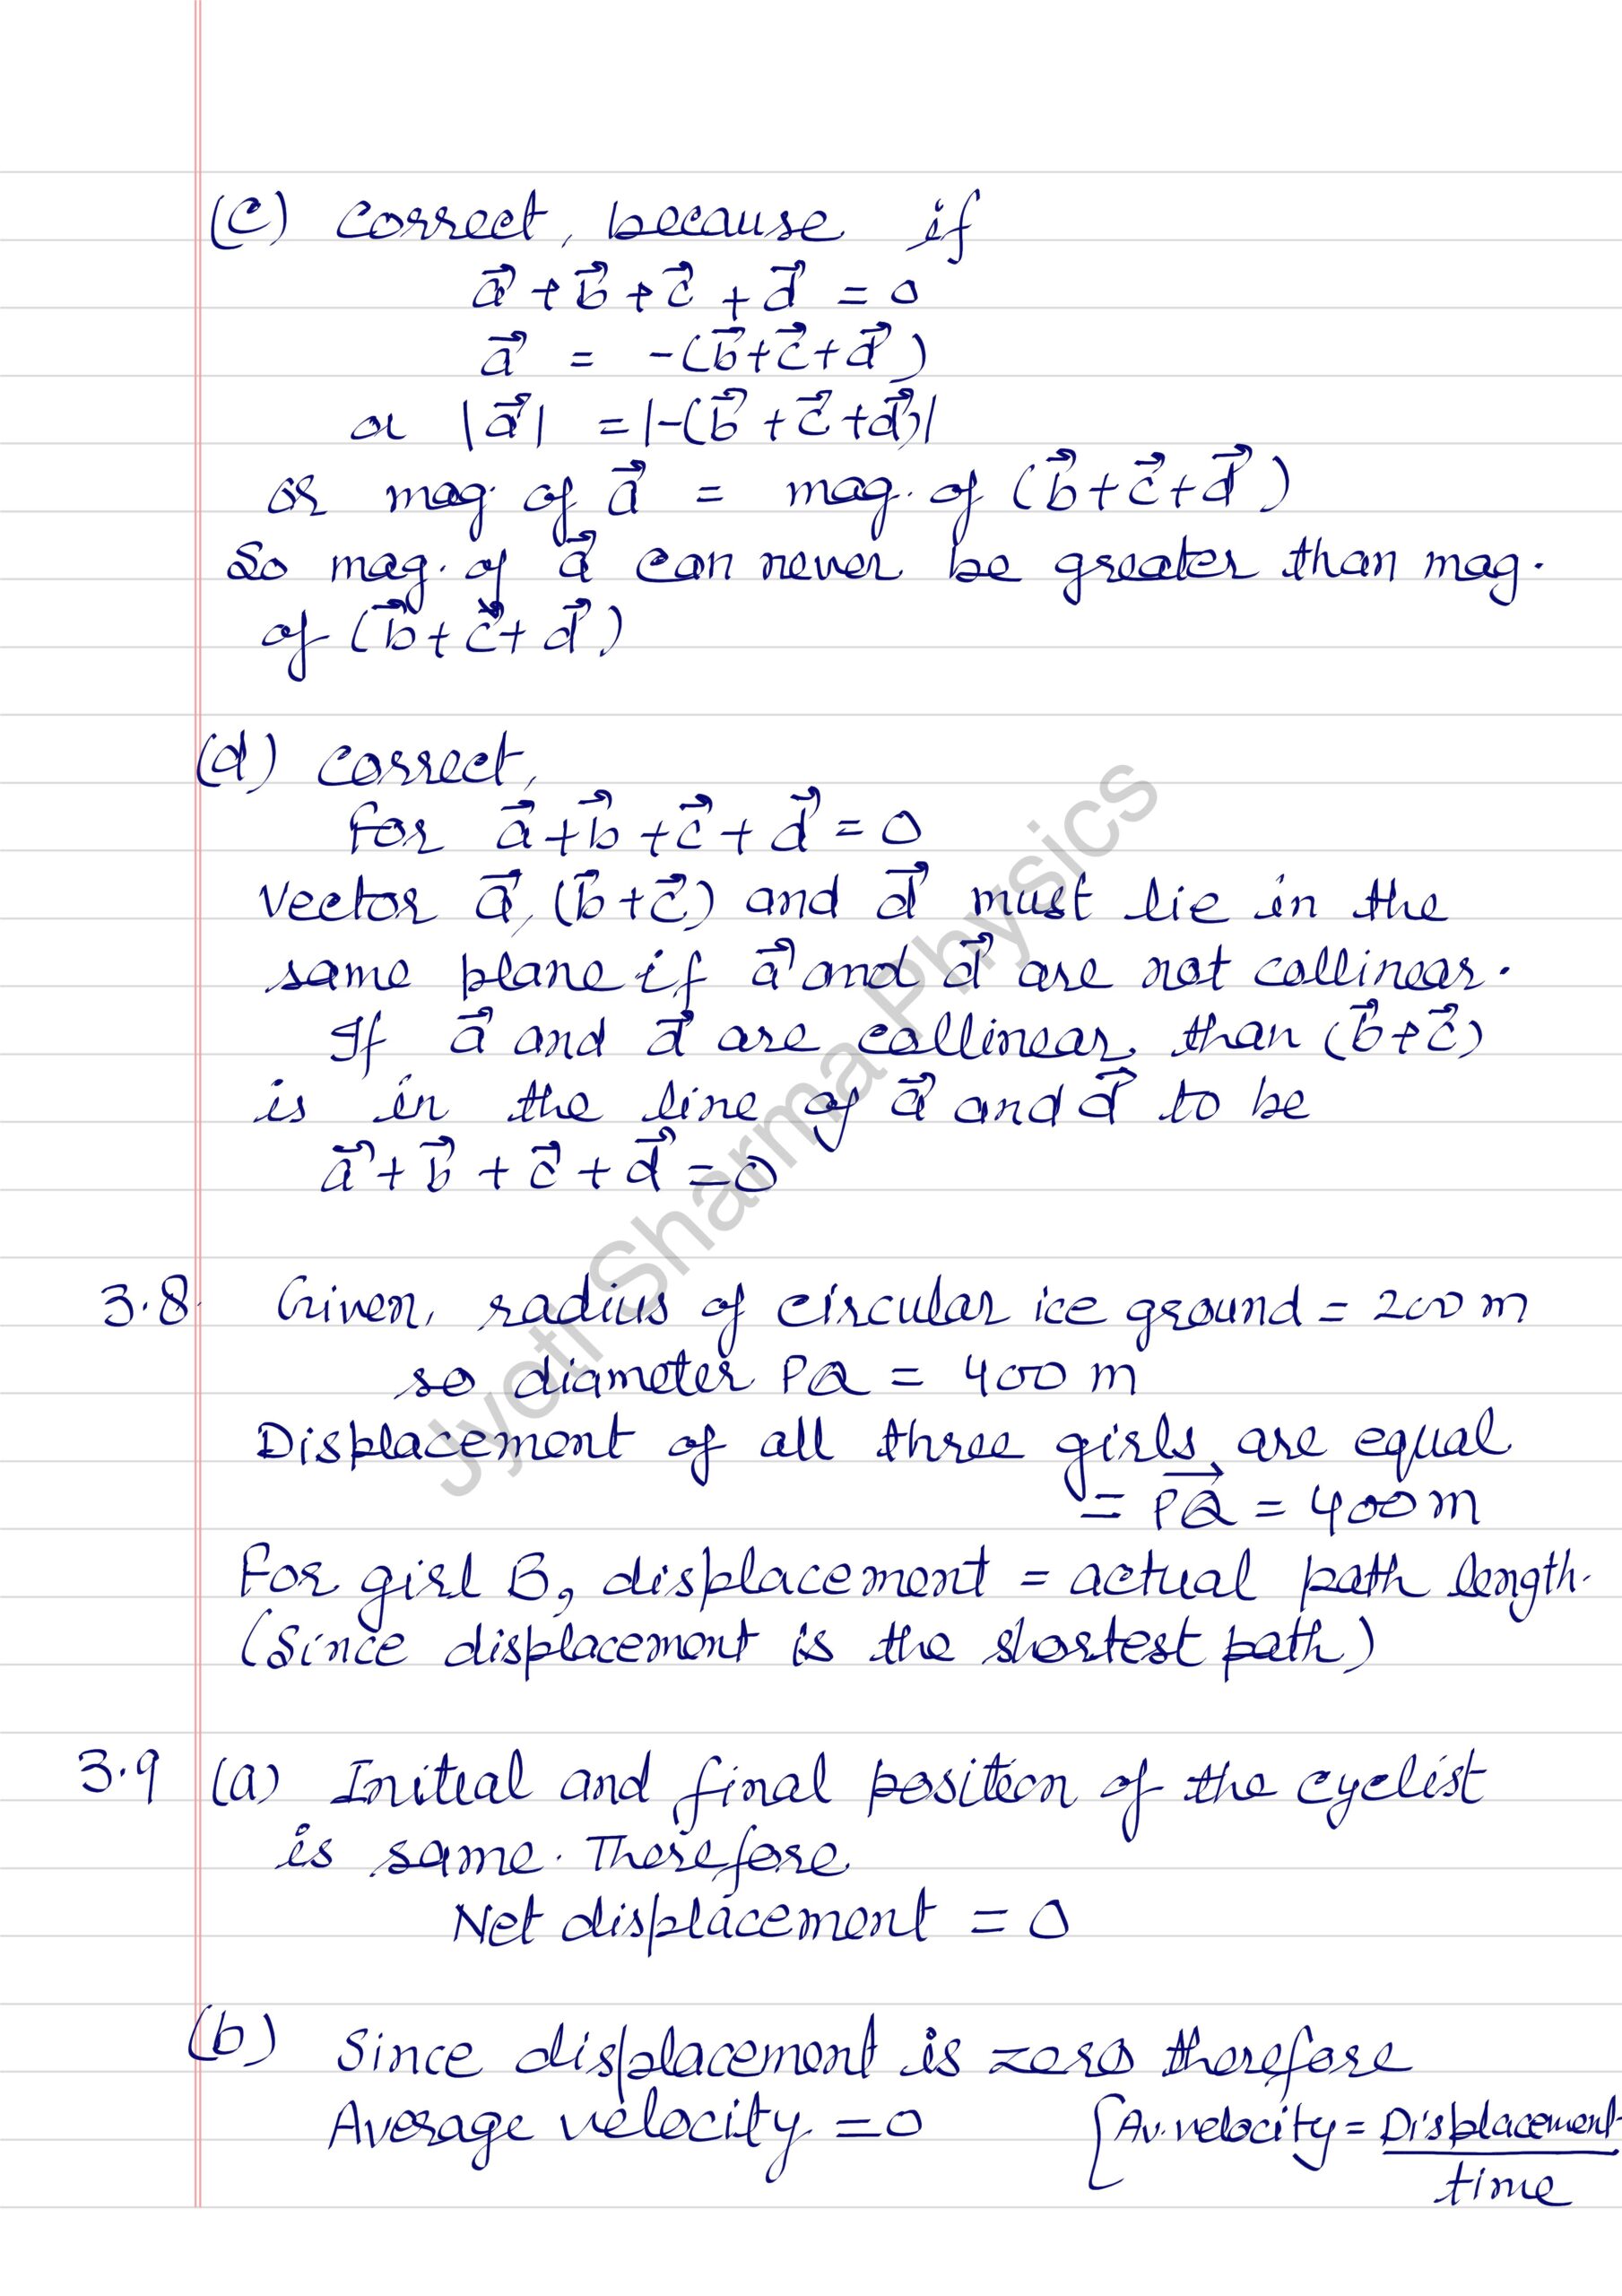 (c) correct, because if
a⃗ + b⃗ + c⃗ + d⃗ = 0
a⃗ = -(b⃗ + c⃗ + d⃗)
or |a⃗| = |-(b⃗ + c⃗ + d⃗)|
or mag. of a⃗ = mag. of (b⃗ + c⃗ + d⃗)
So mag. of a⃗ can never be greater than mag.
of (b⃗ + c⃗ + d⃗)
(d) correct,
For a⃗ + b⃗ + c⃗ + d⃗ = 0
Vector a⃗, (b⃗ + c⃗) and d⃗ must lie in the
same plane if a⃗ and d⃗ are not collinear.
If a⃗ and d⃗ are collinear, than (b⃗ + c⃗)
is in the line of a⃗ and d⃗ to be
a⃗ + b⃗ + c⃗ + d⃗ = 0
3.8 Given, radius of circular ice ground = 200 m
so diameter PQ = 400 m
Displacement of all three girls are equal
= PQ⃗ = 400 m
For girl B, displacement = actual path length.
(Since displacement is the shortest path)
3.9 (a) Initial and final position of the cyclist
is same. Therefore
Net displacement = 0
(b) Since displacement is zero therefore
Average velocity = 0 {Av. velocity = Displacement
time
Jyoti Sharma Physics